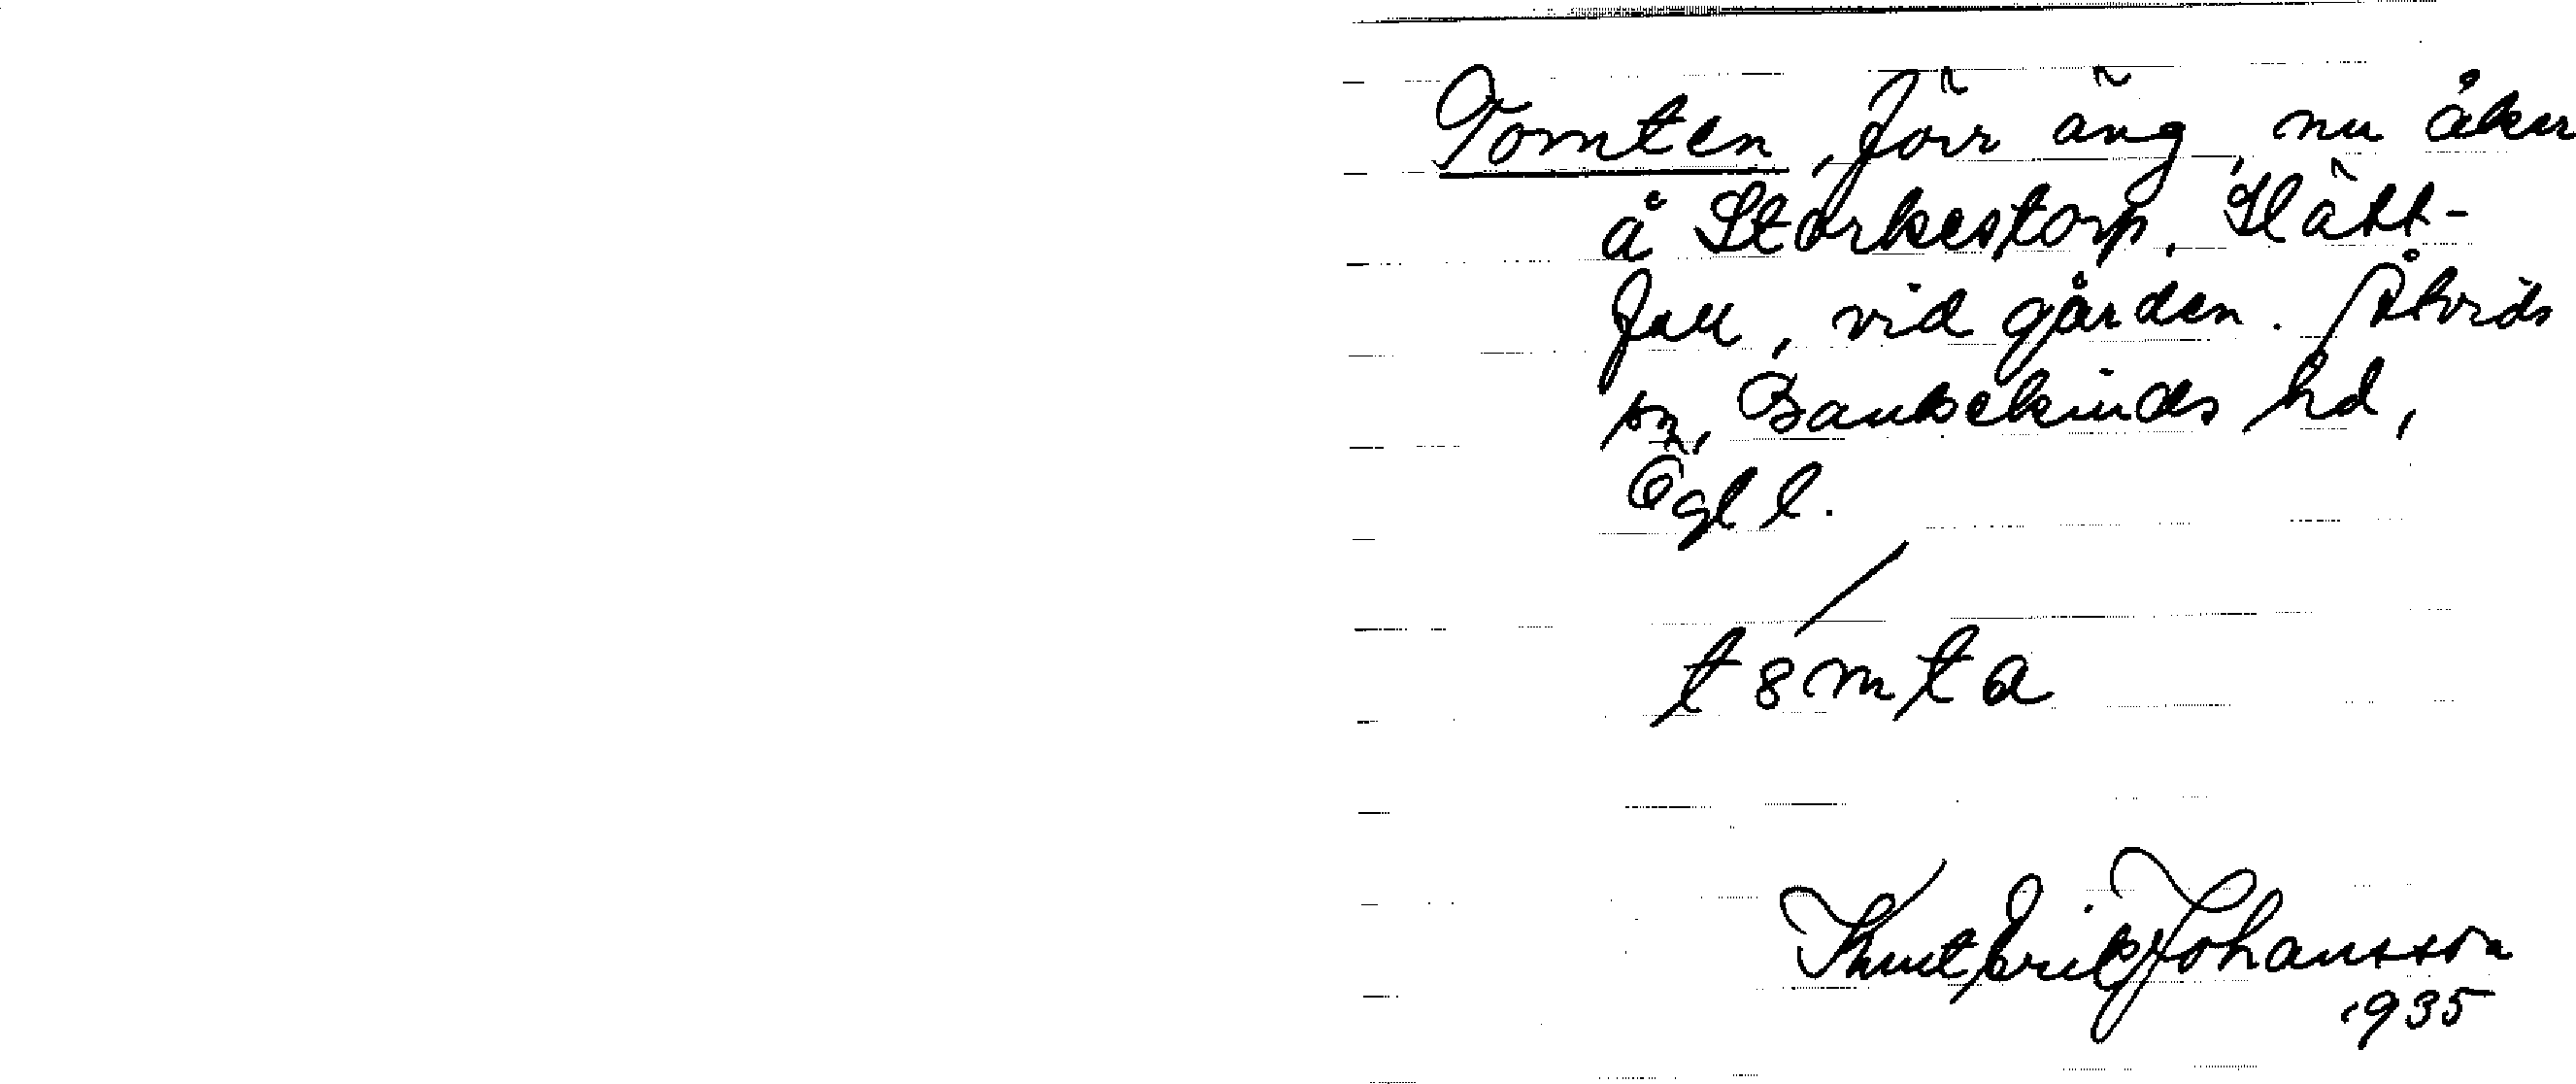 Tomten, förr äng, nu åker
å Storkestorp. Slätt-
fall, vid gården. Åtvids
sn, Bankekinds hd,
Ögl l.
t8mta
Knut Erik Johansson
1935